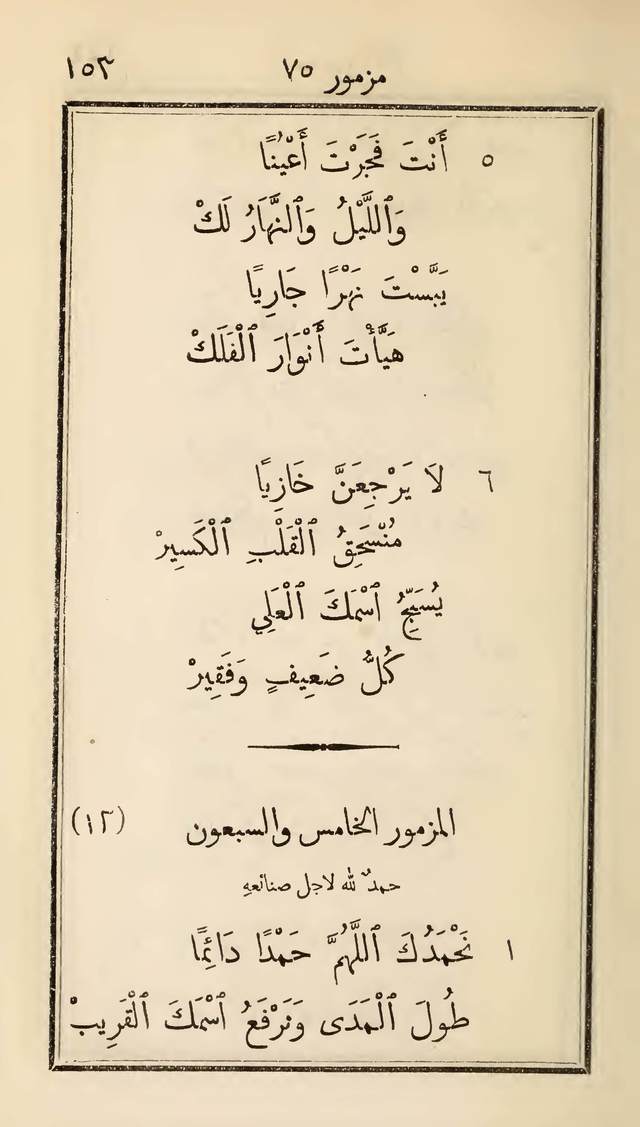 مزمور ٧٥ ١٥٣
٥ أَنْتَ فَجَرْتَ أَعْيُنًا
وَٱللَّيْلُ وَٱلنَّهَارُ لَكْ
يَبَّسْتَ نَهْرًا جَارِيًا
هَيَّأْتَ أَنْوَارَ ٱلْفَلَكْ
٦ لاَ يَرْجِعَنَّ خَازِيًا
مُنْسَحِقُ ٱلْقَلْبِ ٱلْكَسِيرْ
يُسَبِّحُ ٱسْمَكَ ٱلْعَلِي
كُلُّ ضَعِيفٍ وَفَقِيرْ
المزمور الخامس والسبعون (١٢)
حمدٌ لله لاجل صنائعهِ
١ نَحْمَدُكَ ٱللَّهُمَّ حَمْدًا دَائِمًا
طُولَ ٱلْمَدَى وَنَرْفَعُ ٱسْمَكَ ٱلْقَرِيبْ